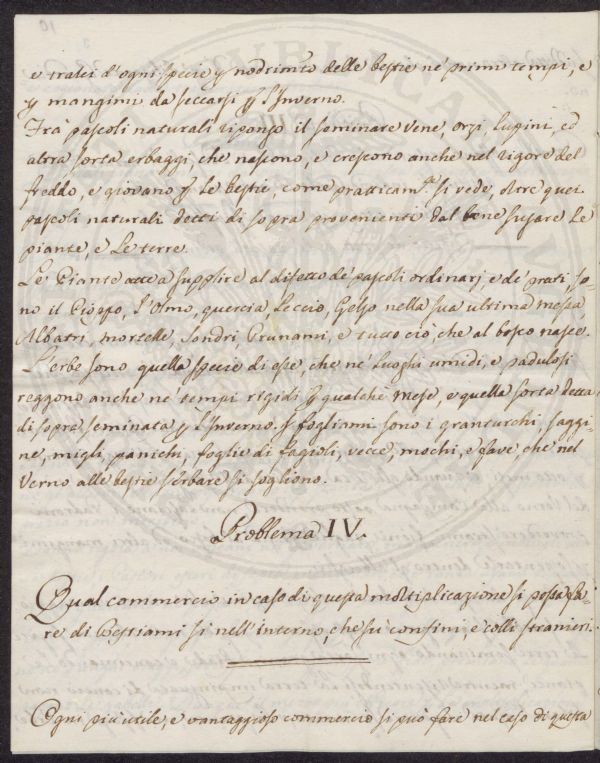 e tralci d'ogni specie p nodrim.to delle bestie ne' primi tempi, e
p mangimi da seccarsi p l'Inverno.
Frà pascoli naturali ripongo il seminare Vene, orzi, Lupini, ed
altra sorta erbaggi, che nascono, e crescono anche nel rigore del
freddo, e giovano p le bestie, come pratticam.te si vede, oltre quei
pascoli naturali detti di sopra provenienti dal bene sugare le
piante, e Le terre.
Le Piante atte a supplire al difetto de' pascoli ordinarj, e de' prati, so-
no il Pioppo, l'Olmo, quercia Leccio, Gelso nella sua ultima messa
Albatri, mortelle, Sondri, Prunami, e tutto ciò, che al bosco nasce.
L'erbe sono quella specie di esse, che ne' Luoghi umidi, e padulosi
reggono anche ne' tempi rigidi p qualche Mese, e quella sorta detta
di sopra seminata p l'Inverno. I fogliami sono i granturchi, saggi-
ne, migli, panichi, foglie di fagioli, vecce, mochi, e fave che nel
Verno alle bestie serbare si sogliono.
Problema IV.
Qual commercio in caso di questa moltiplicazione si possa fa-
re di Bestiami sì nell'interno, che su' confini, e colli stranieri.
Ogni più utile, e vantaggioso commercio si può fare nel caso di questa